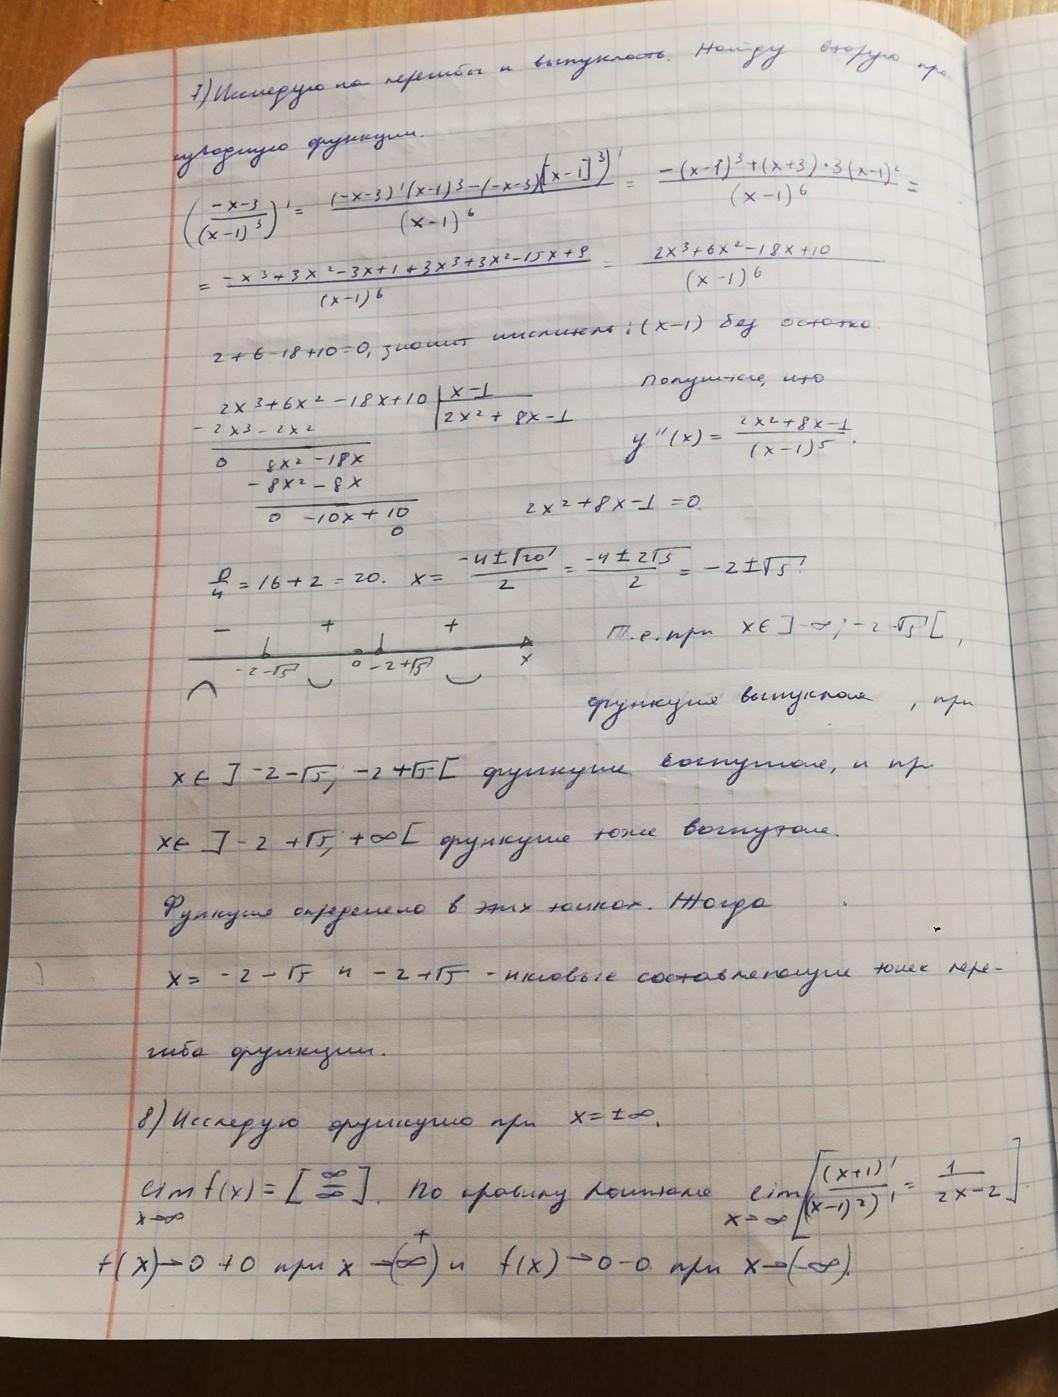 7) Исследую на перегибы и выпуклость. Найду вторую про-
изводную функции.
((-x-3)/(x-1)^3)' = ((-x-3)'(x-1)^3-(-x-3)([x-1]^3)')/(x-1)^6 = (-(x-1)^3+(x+3)·3(x-1)^2)/(x-1)^6 =
= (-x^3+3x^2-3x+1+3x^3+3x^2-15x+9)/(x-1)^6 = (2x^3+6x^2-18x+10)/(x-1)^6
2+6-18+10=0, значит числитель ⋮ (x-1) без остатка.
2x^3+6x^2-18x+10 | x-1
- 2x^3-2x^2 | 2x^2+8x-1
0 8x^2-18x
- 8x^2-8x
0 -10x+10
0
Получаем, что
y''(x) = (2x^2+8x-1)/(x-1)^5.
2x^2+8x-1=0.
D/4=16+2=20. x= (-4±√20)/2 = (-4±2√5)/2 = -2±√5
- + +
-2-√5 0 -2+√5 x
Т.е. при x∈]-∞; -2-√5[,
функция выпуклая, при
x∈]-2-√5; -2+√5[ функция вогнутая, и при
x∈]-2+√5; +∞[ функция тоже вогнутая.
Функция определена в этих точках. Тогда
x= -2-√5 и -2+√5 - иксовые составляющие точек пере-
гиба функции.
8) Исследую функцию при x=±∞.
lim f(x) = [∞/∞]. По правилу Лопиталя lim [(x+1)'/((x-1)^2)' = 1/(2x-2)].
x→∞ x→∞
f(x)→0+0 при x→(+∞) и f(x)→0-0 при x→(-∞).